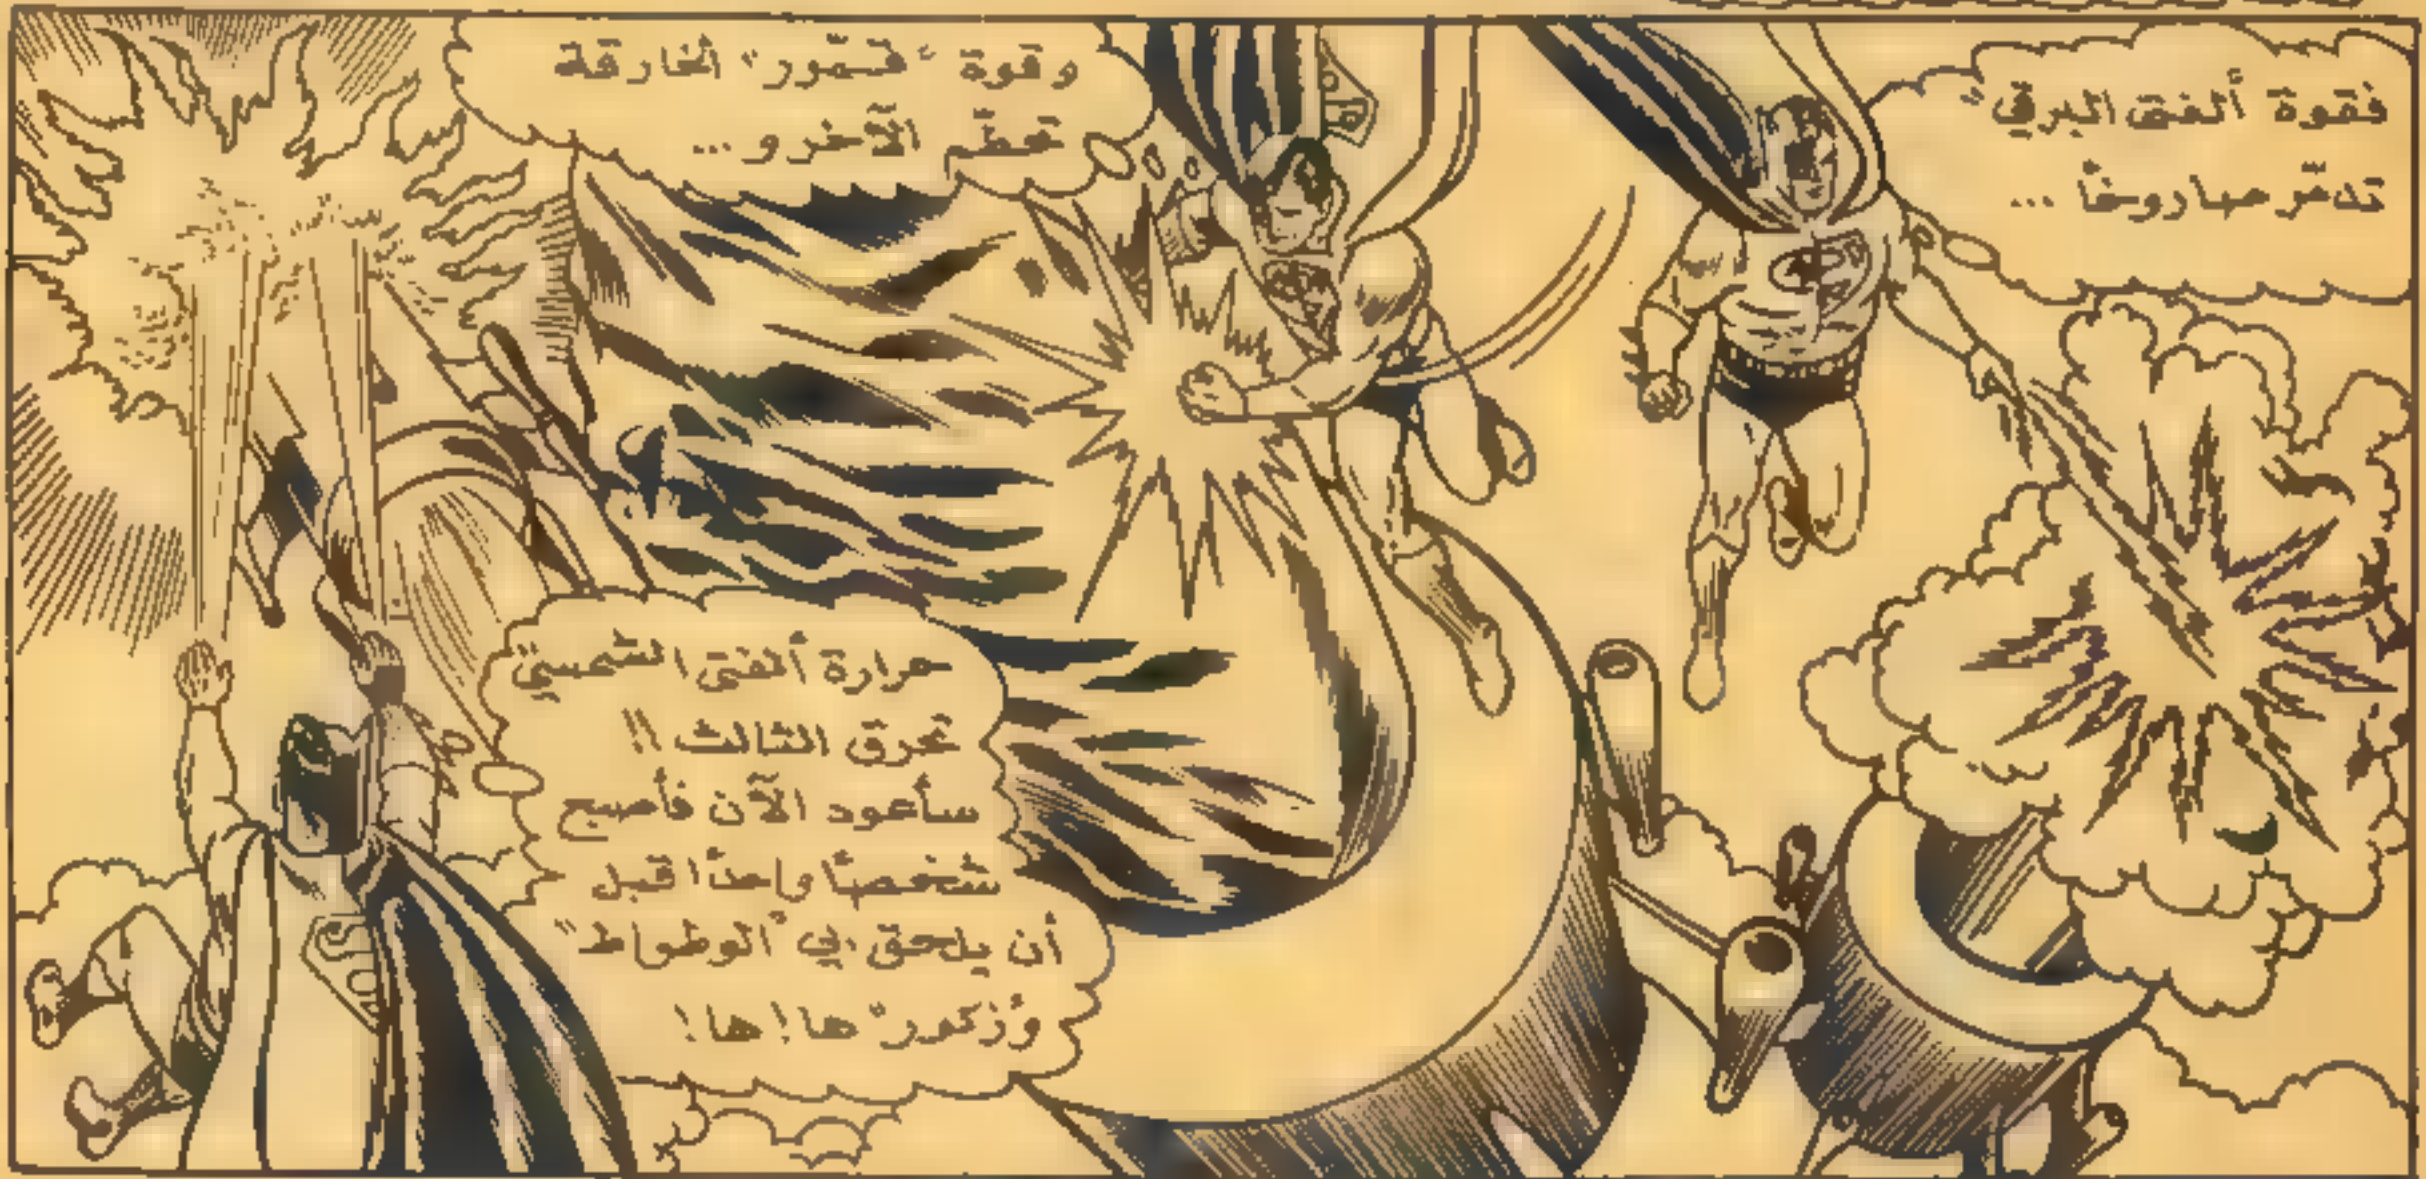 فقوة ألفتى البرقي"
تدمّر صاروخًا ...
وقوة "قـمّور" الخارقة
تحطّم الآخر و ...
حرارة ألفتى الشمسيّ
تحرق الثالث !!
سأعود الآن فأصبح
شخصًا واحدًا قبل
أن يلحق بي "الوطواط"
وُزكور" ها ! ها !